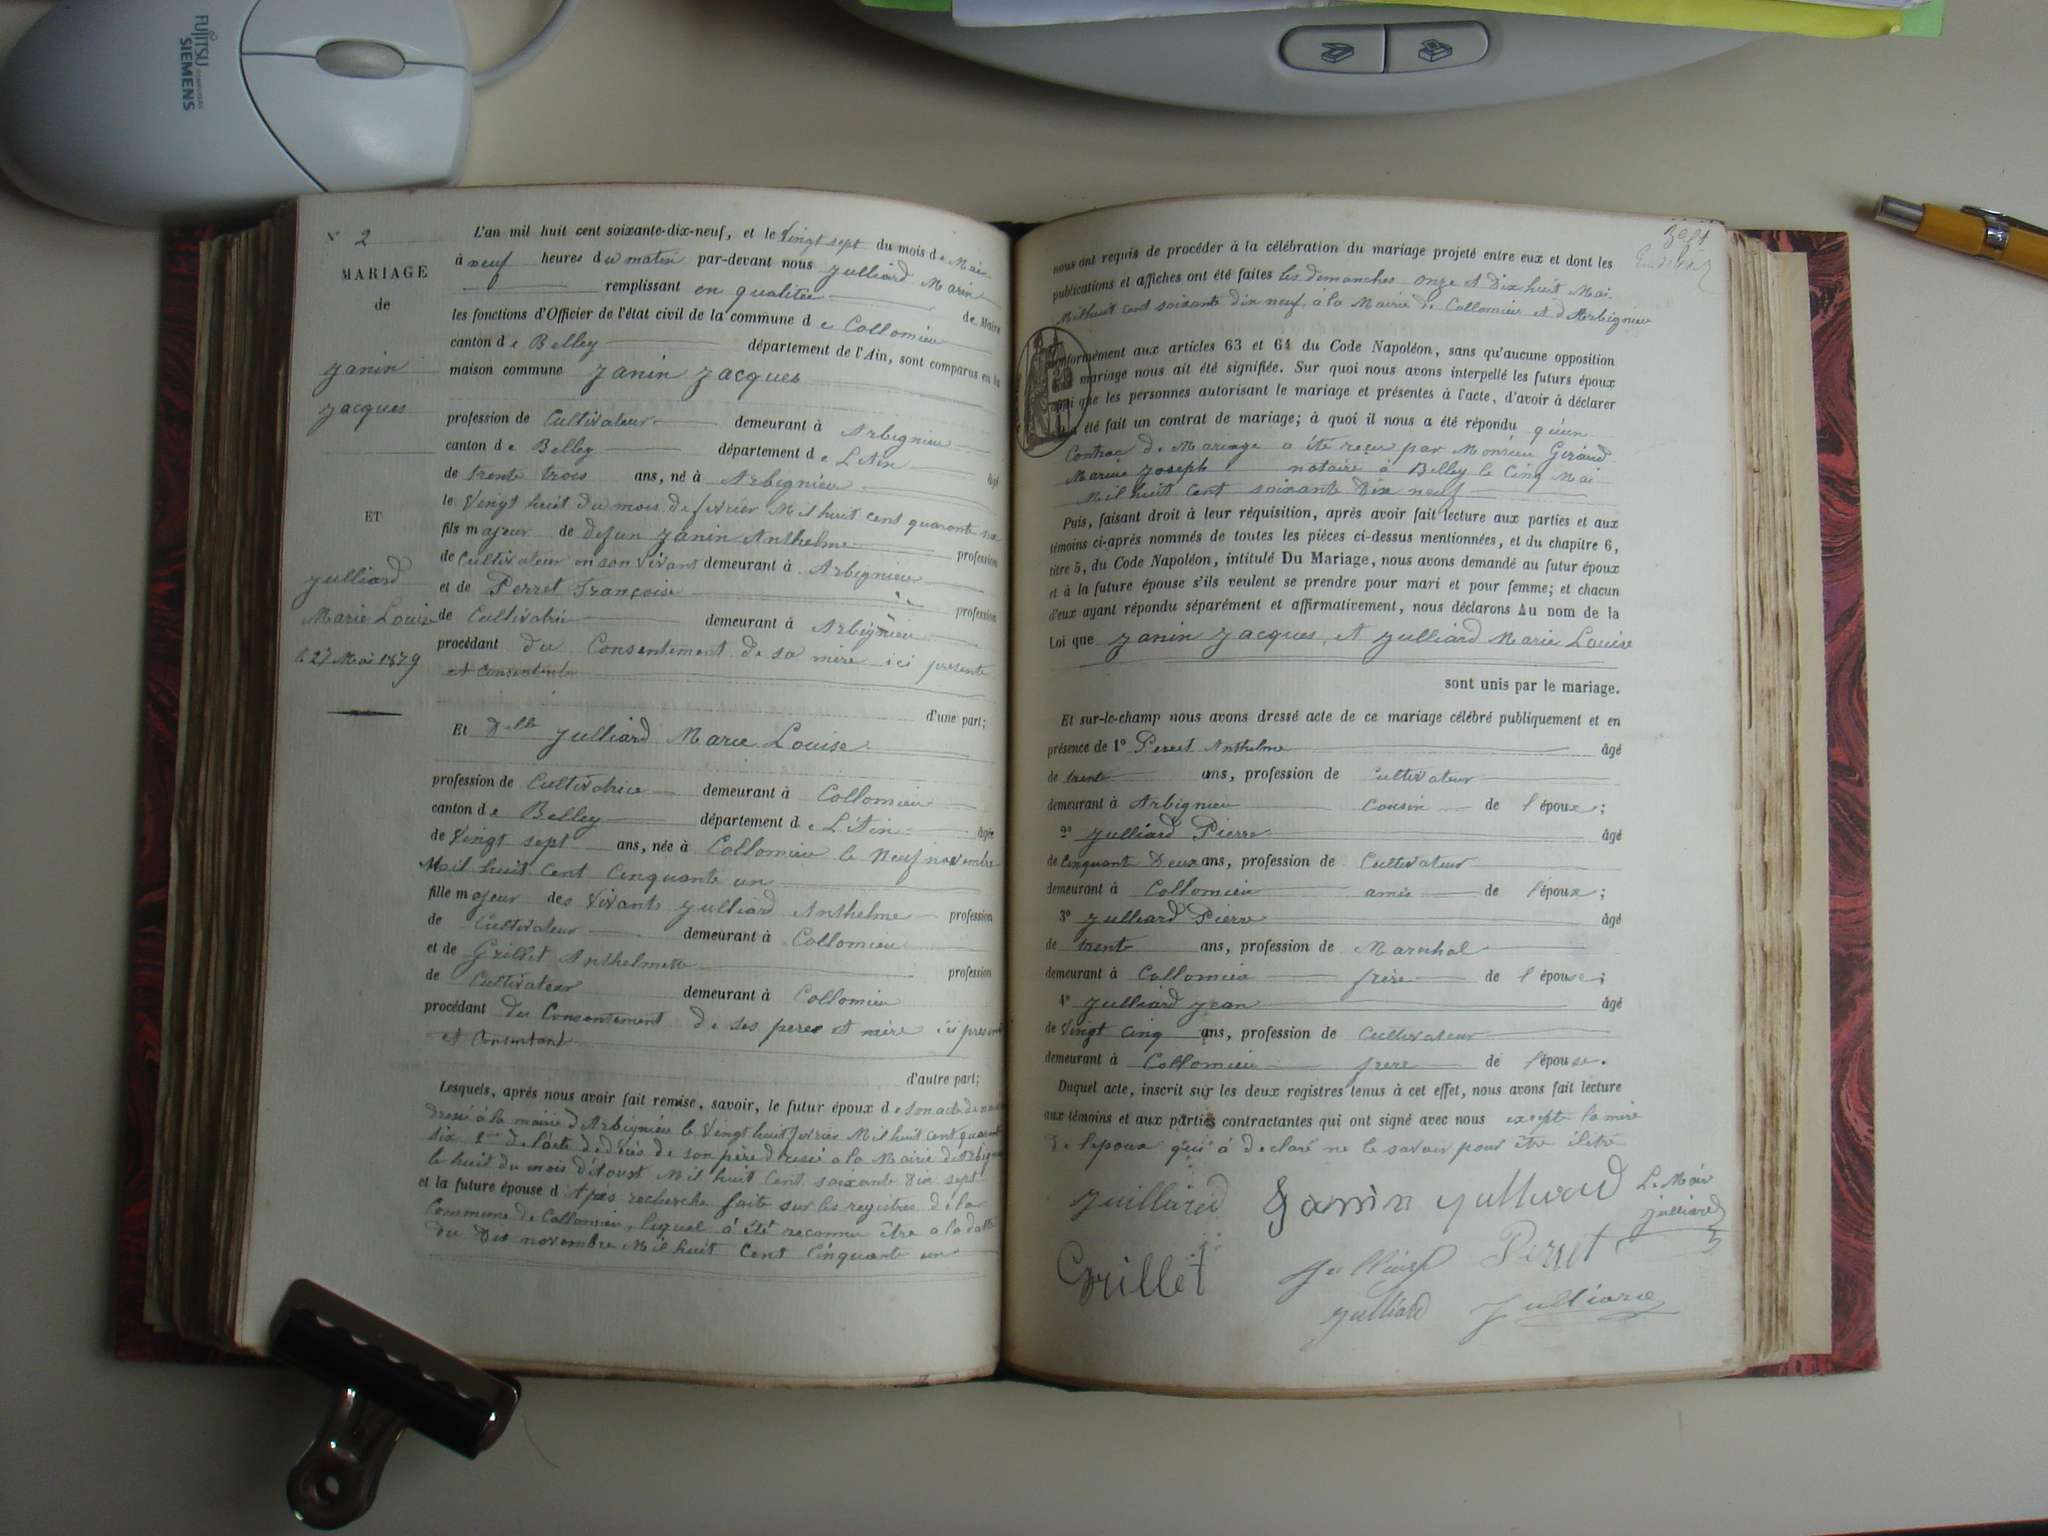 FUJITSU
COMPUTERS
SIEMENS
N° 2
MARIAGE
de
Janin
Jacques
ET
Julliard
Marie Louise
le 27 Mai 1879
L'an mil huit cent soixante-dix-neuf, et le Vingt sept du mois de Mai
à neuf heures du matin par-devant nous Julliard Marin
remplissant en qualitée de Maire
les fonctions d'Officier de l'état civil de la commune de Collomieu
canton de Belley département de l'Ain, sont comparus en la
maison commune Janin Jacques
profession de Cultivateur demeurant à Arbignieu
canton de Belley département de L'Ain
de trente trois ans, né à Arbignieu âgé
le Vingt huit du mois de fevrier Mil huit cent quarante six
fils majeur de defun Janin Anthelme profession
de Cultivateur en son vivant demeurant à Arbignieu
et de Perret Françoise profession
de Cultivatrice demeurant à Arbignieu
procédant du Consentement de sa mère ici presente
et Consentente
d'une part;
Et Dlle Julliard Marie Louise
profession de Cultivatrice demeurant à Collomieu
canton de Belley département de L'Ain âgée
de Vingt sept ans, née à Collomieu le Neuf novembre
Mil huit Cent Cinquante un
fille majeur des vivants Julliard Anthelme profession
de Cultivateur demeurant à Collomieu
et de Grillet Anthelmette profession
de Cultivateur demeurant à Collomieu
procédant du Consentement de ses peres et mère ici present
et Consentant
d'autre part;
Lesquels, après nous avoir fait remise, savoir, le futur époux de son acte de
dressé à la mairie d'Arbignieu le Vingt huit fevrier Mil huit cent quarante
six 2 de l'acte de décès de son père dressé a la Mairie d'Arbignieu
le huit du mois d'Aoust Mil huit Cent soixante Dix sept
et la future épouse d'Après recherche faite sur les registres de la
Commune de Collomieu, lequel à été reconnu être a la datte
du Dix novembre Mil huit Cent Cinquante un
nous ont requis de procéder à la célébration du mariage projeté entre eux et dont les
publications et affiches ont été faites les demanches onze et Dix huit Mai
Mil huit cent soixante dix neuf à la Mairie de Collomieu et d'Arbignieu
conformément aux articles 63 et 64 du Code Napoléon, sans qu'aucune opposition
mariage nous ait été signifiée. Sur quoi nous avons interpellé les futurs époux
que les personnes autorisant le mariage et présentes à l'acte, d'avoir à déclarer
été fait un contrat de mariage; à quoi il nous a été répondu qu'un
Contrac de Mariage a été reçu par Monsieur Giraud
Marie Joseph notaire à Belley le Cinq Mai
Mil huit cent soixante Dix neuf
Puis, faisant droit à leur réquisition, après avoir fait lecture aux parties et aux
témoins ci-après nommés de toutes les pièces ci-dessus mentionnées, et du chapitre 6,
titre 5, du Code Napoléon, intitulé Du Mariage, nous avons demandé au futur époux
et à la future épouse s'ils veulent se prendre pour mari et pour femme; et chacun
d'eux ayant répondu séparément et affirmativement, nous déclarons Au nom de la
Loi que Janin Jacques, et Julliard Marie Louise
sont unis par le mariage.
Et sur-le-champ nous avons dressé acte de ce mariage célébré publiquement et en
présence de 1° Perret Anthelme âgé
de trente ans, profession de Cultivateur
demeurant à Arbignieu cousin de l'époux;
2° Julliard Pierre âgé
de Cinquant Deux ans, profession de Cultivateur
demeurant à Collomieu amie de l'époux;
3° Julliard Pierre âgé
de trente ans, profession de Marechal
demeurant à Collomieu frère de l'épouse;
4° Julliard Jean âgé
de Vingt Cinq ans, profession de Cultivateur
demeurant à Collomieu frere de l'épouse.
Duquel acte, inscrit sur les deux registres tenus à cet effet, nous avons fait lecture
aux témoins et aux parties contractantes qui ont signé avec nous excepté la mère
de l'epoux qui à declaré ne le savoir pour être iletré
Juilliard Janin Julliard Le Maire
Julliard
Grillet Julliard Perret
Julliard Julliard